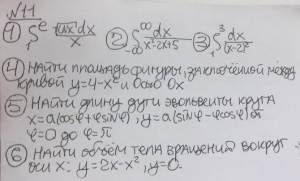 №11
① ∫₁ᵉ ln x² dx / x ② ∫₋∞^∞ dx / x-2x+5 ③ ∫₁³ dx / (x-2)²
④ Найти площадь фигуры, заключённой между
кривой y=4-x² и осью Ox
⑤ Найти длину дуги эвольвенты круга
x=a(cosφ+φsinφ), y=a(sinφ-φcosφ) от
φ=0 до φ=π
⑥ Найти объём тела вращения вокруг
оси x: y=2x-x², y=0.